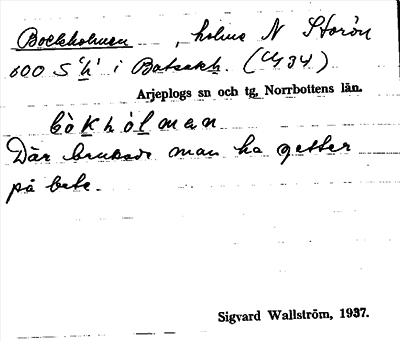 Bockholmen, holme N Storön
600 S 'h' i Batsakh. (Y34)
Arjeplogs sn och tg, Norrbottens län.
bòkhólman
Där brukade man ha getter
på bete.
Sigvard Wallström, 1937.